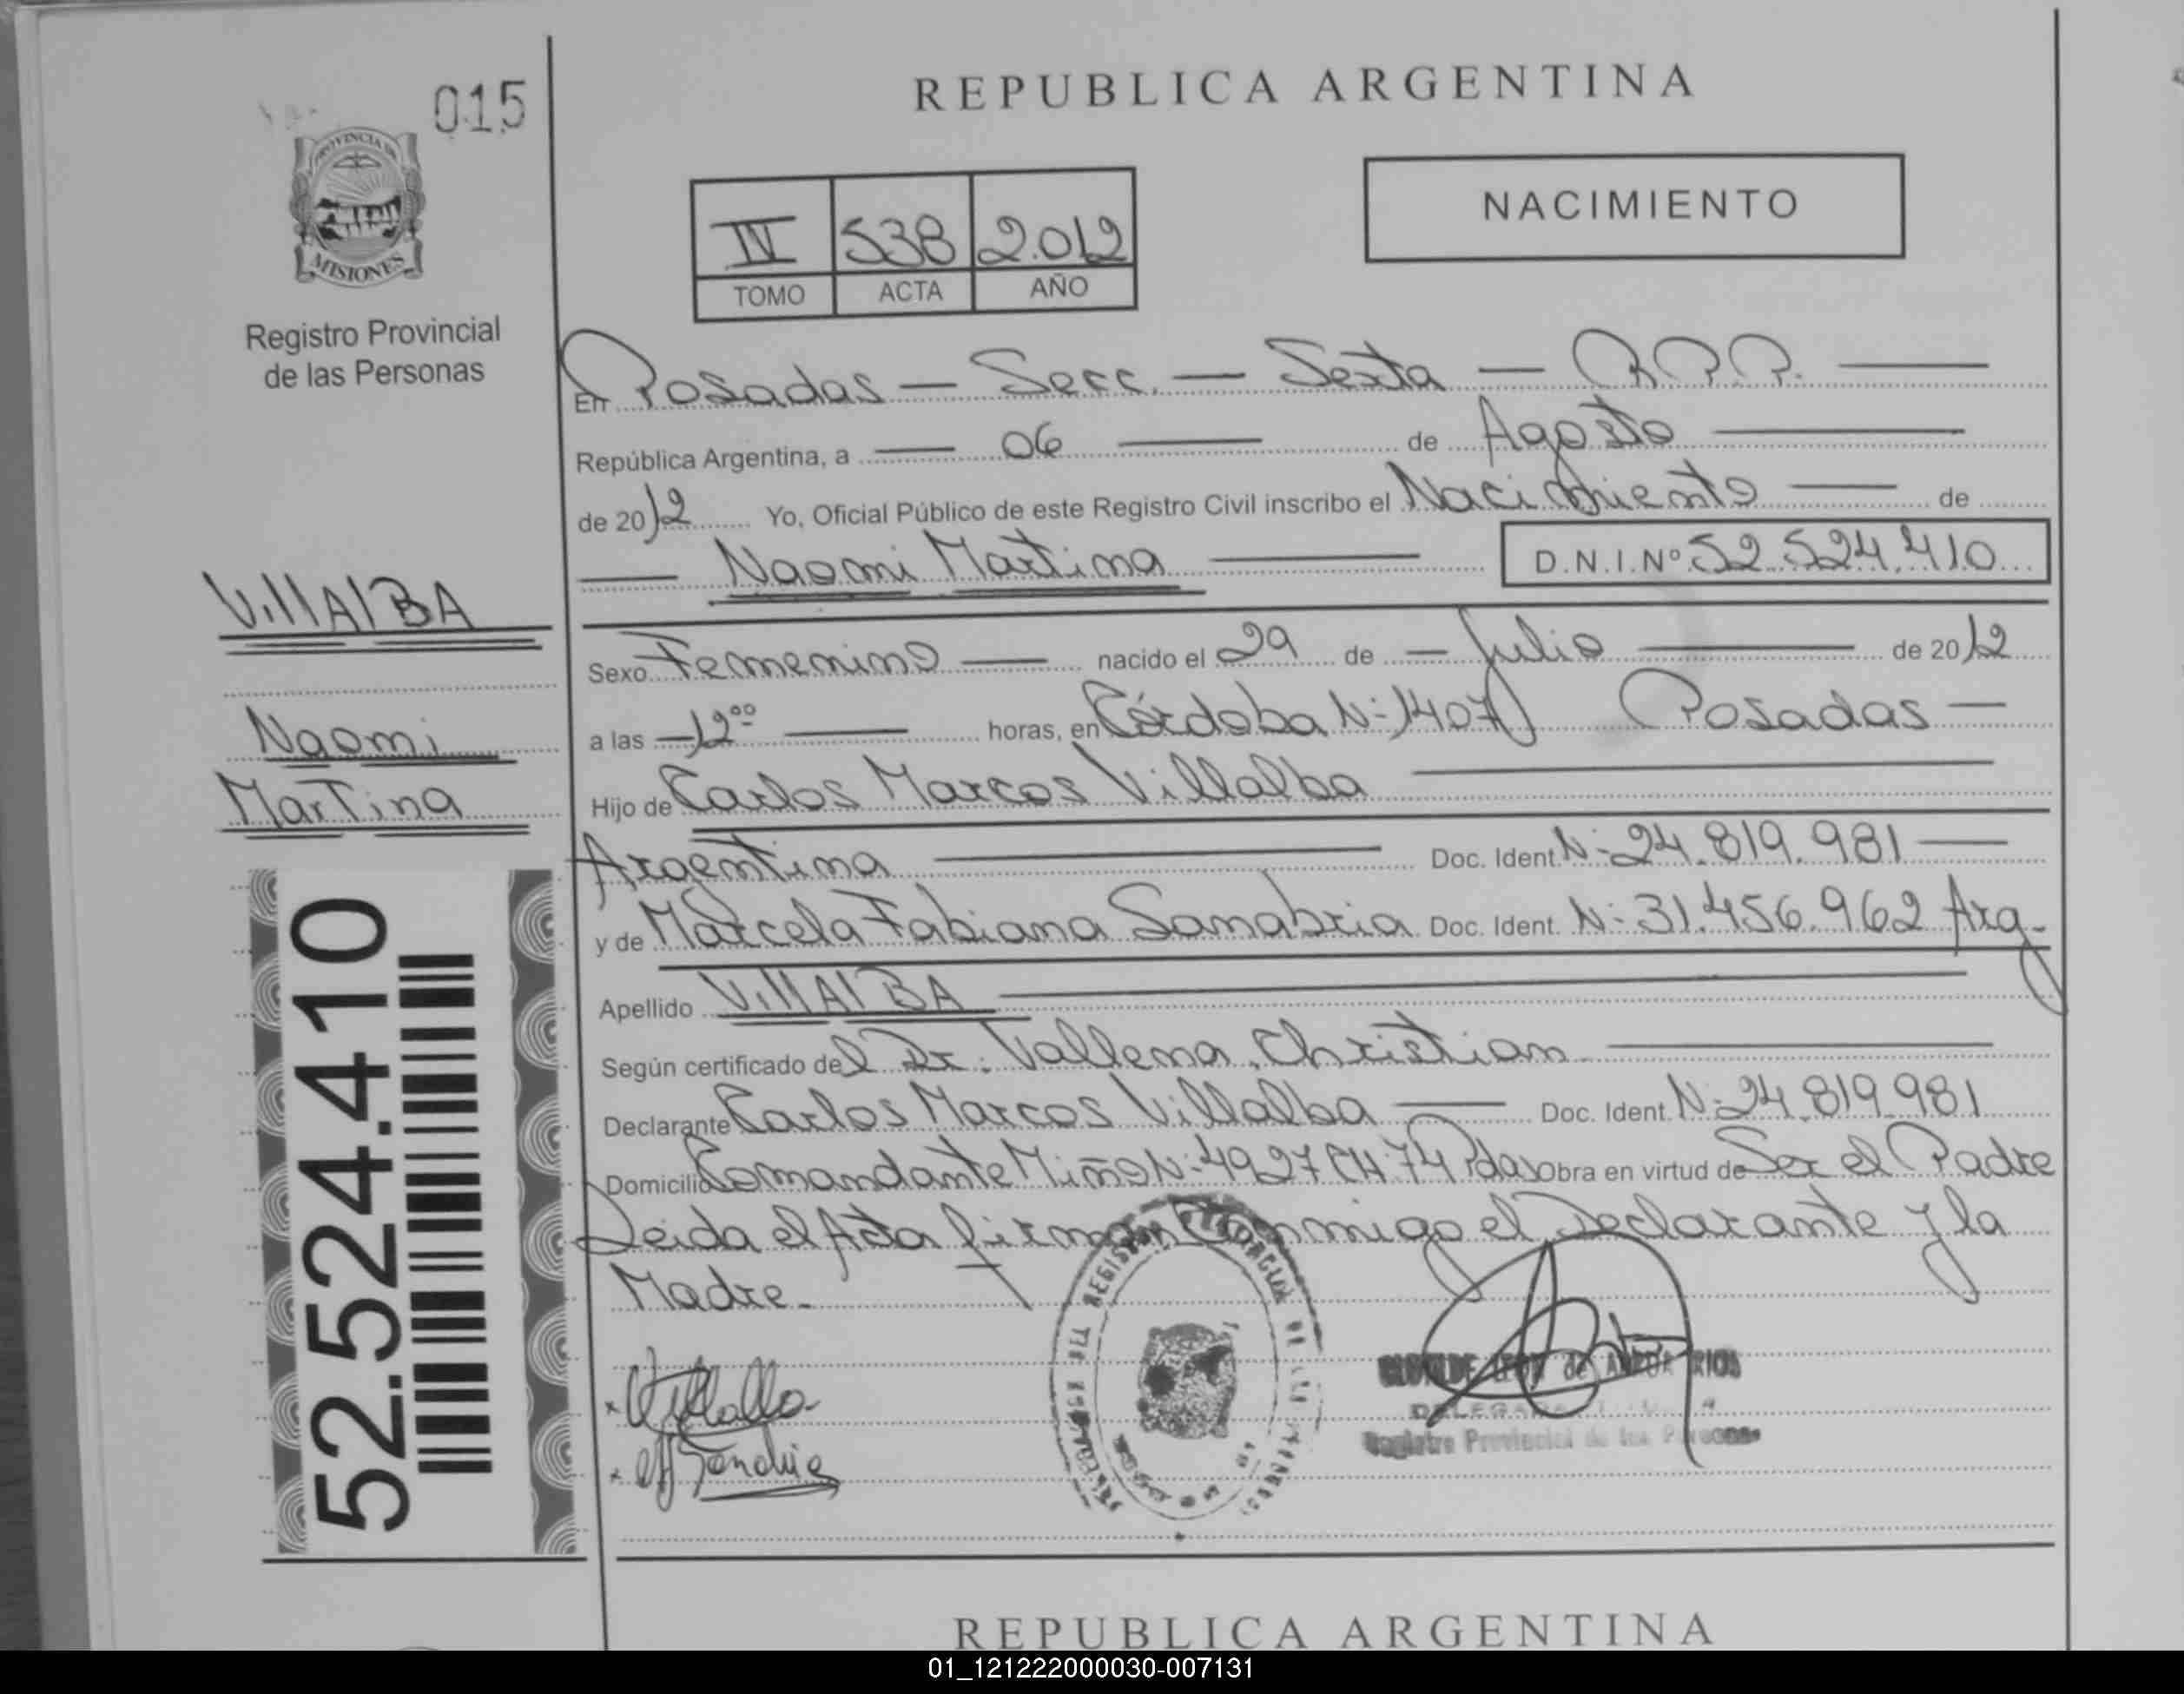 015
PROVINCIA DE
MISIONES
Registro Provincial
de las Personas
VIllAlBA
Naomi
Martina
52.524.410
REPUBLICA ARGENTINA
IV 538 2.012
TOMO ACTA AÑO
NACIMIENTO
En Posadas — Secc. — Sexta — R.P.P. —
República Argentina, a — 06 — de Agosto —
de 2012 Yo, Oficial Público de este Registro Civil inscribo el Nacimiento — de
— Naomi Martina — D.N.I.Nº 52.524.410
Sexo Femenino — nacido el 29 de — Julio — de 2012
a las — 12⁰⁰ — horas, en Córdoba Nº 1407 Posadas —
Hijo de Carlos Marcos Villalba —
Argentina — Doc. Ident. Nº 24.819.981 —
y de Marcela Fabiana Sanabria Doc. Ident. Nº 31.456.962 Arg.
Apellido VIllAlBA —
Según certificado del Dr. Christian —
Declarante Carlos Marcos Villalba — Doc. Ident. Nº 24.819.981
Domicilio Comandante Miño Nº 4927 CH 74 Pdas Obra en virtud de Ser el Padre
Leida el Acta firman Conmigo el Declarante y la
Madre.
Registro Provincial de las Personas
REPUBLICA ARGENTINA
01_121222000030-007131